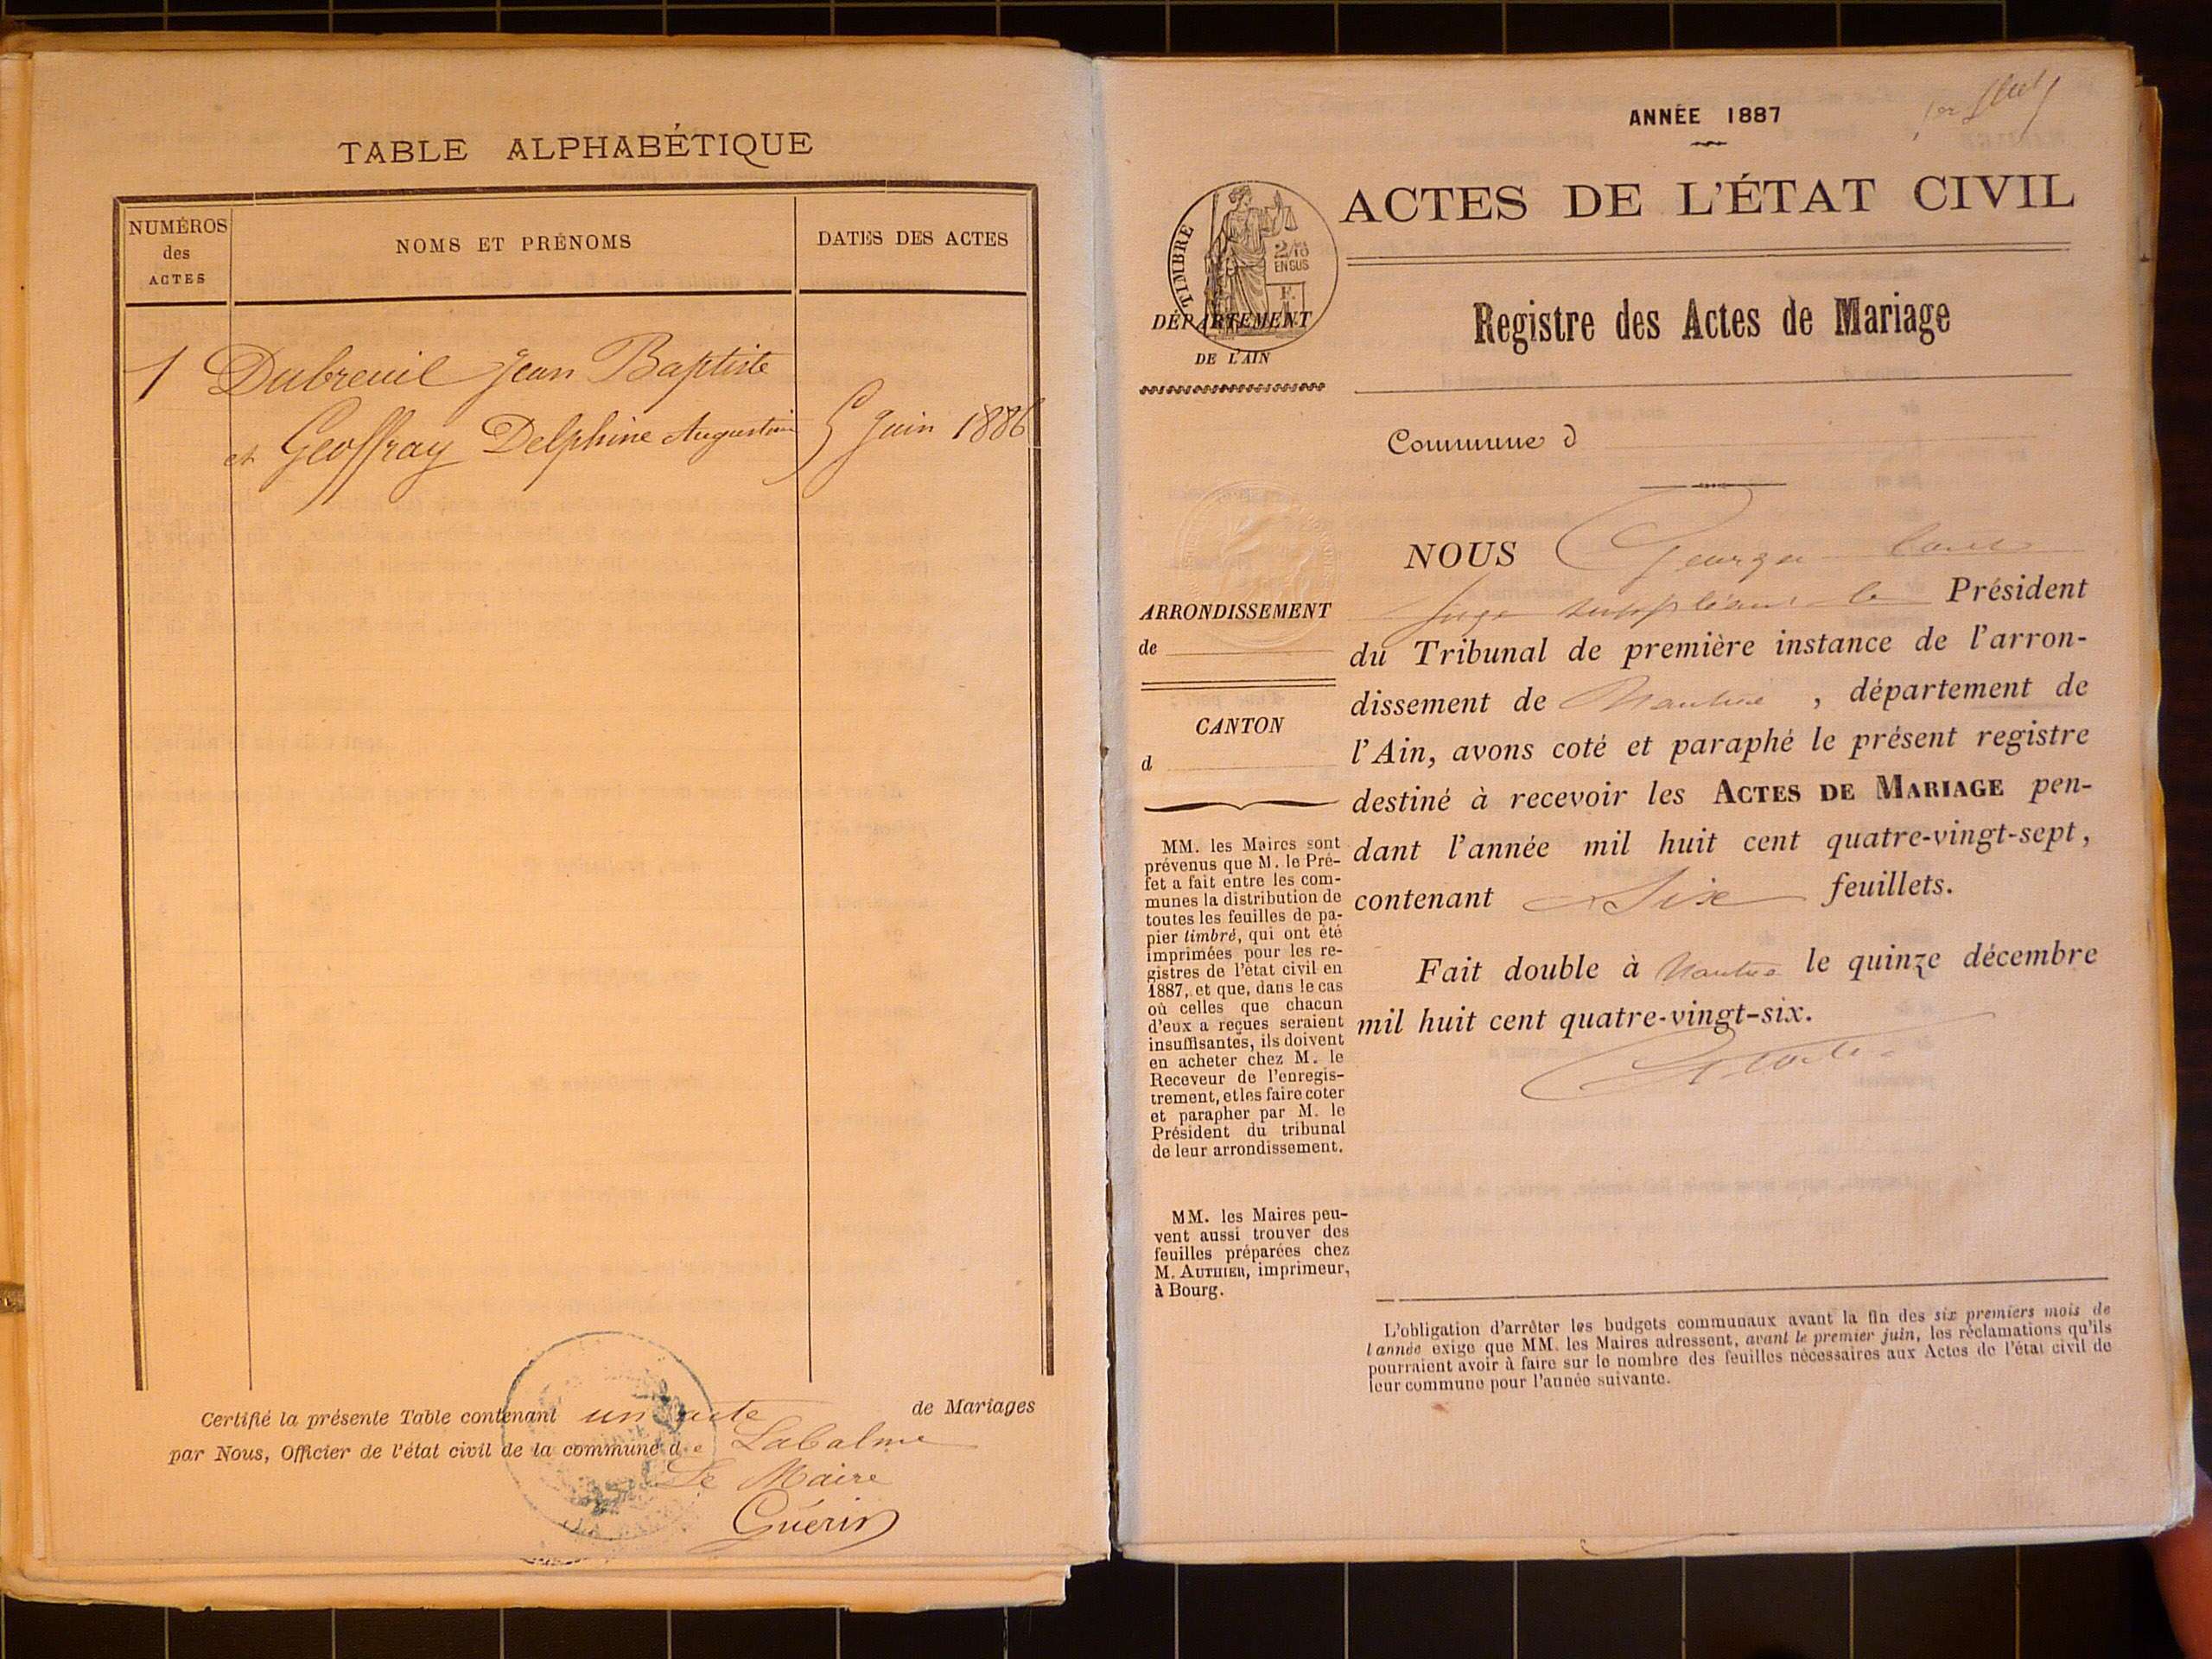 TABLE ALPHABÉTIQUE
NUMÉROS
des
ACTES
NOMS ET PRÉNOMS
DATES DES ACTES
1 Dubreuil Jean Baptiste
et Geoffray Delphine Augustine
5 Juin 1886
Certifié la présente Table contenant un acte de Mariages
par Nous, Officier de l'état civil de la commune de Labalme
Le Maire
Guérin
1er feuillet
ANNÉE 1887
ACTES DE L'ÉTAT CIVIL
TIMBRE
2/10
EN SUS
DÉPARTEMENT
DE L'AIN
Registre des Actes de Mariage
Commune d
NOUS Georges
ARRONDISSEMENT
de
CANTON
d
Juge suppléant le Président
du Tribunal de première instance de l'arron-
dissement de Nantua, département de
l'Ain, avons coté et paraphé le présent registre
destiné à recevoir les ACTES DE MARIAGE pen-
dant l'année mil huit cent quatre-vingt-sept,
contenant Six feuillets.
Fait double à Nantua le quinze décembre
mil huit cent quatre-vingt-six.
MM. les Maires sont
prévenus que M. le Pré-
fet a fait entre les com-
munes la distribution de
toutes les feuilles de pa-
pier timbré, qui ont été
imprimées pour les re-
gistres de l'état civil en
1887, et que, dans le cas
où celles que chacun
d'eux a reçues seraient
insuffisantes, ils doivent
en acheter chez M. le
Receveur de l'enregis-
trement, et les faire coter
et parapher par M. le
Président du tribunal
de leur arrondissement.
MM. les Maires peu-
vent aussi trouver des
feuilles préparées chez
M. AUTHIER, imprimeur,
à Bourg.
L'obligation d'arrêter les budgets communaux avant la fin des six premiers mois de
l'année exige que MM. les Maires adressent, avant le premier juin, les réclamations qu'ils
pourraient avoir à faire sur le nombre des feuilles nécessaires aux Actes de l'état civil de
leur commune pour l'année suivante.